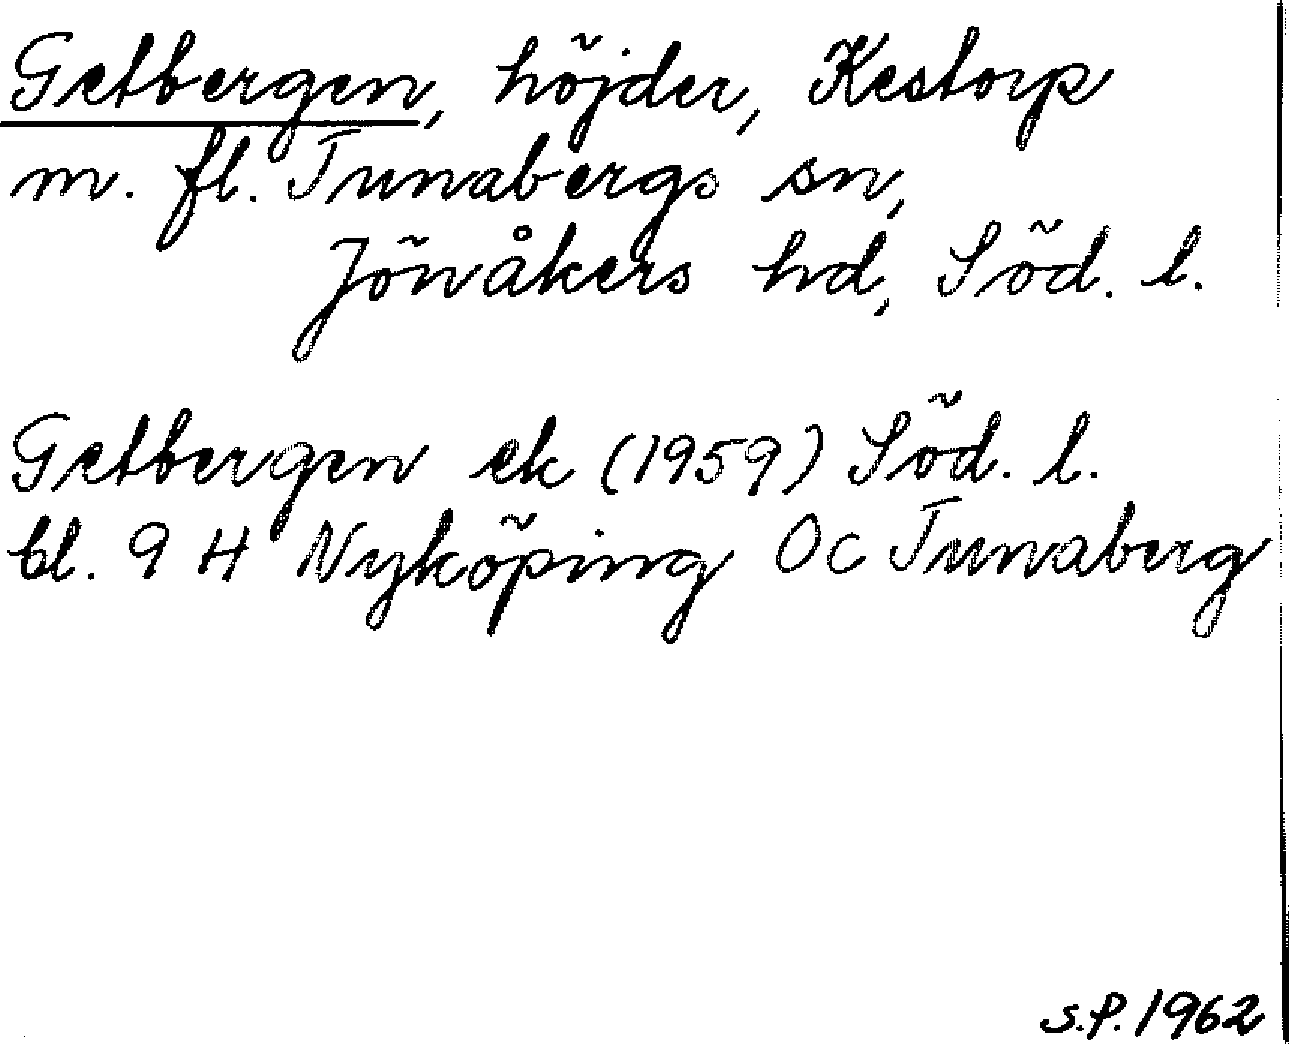 Getbergen, höjder, Kestorp
m. fl. Tunabergs sn,
Jönåkers hd, Söd. l.
Getbergen ek (1959) Söd. l.
bl. 9 H Nyköping Oc Tunaberg
S.P. 1962